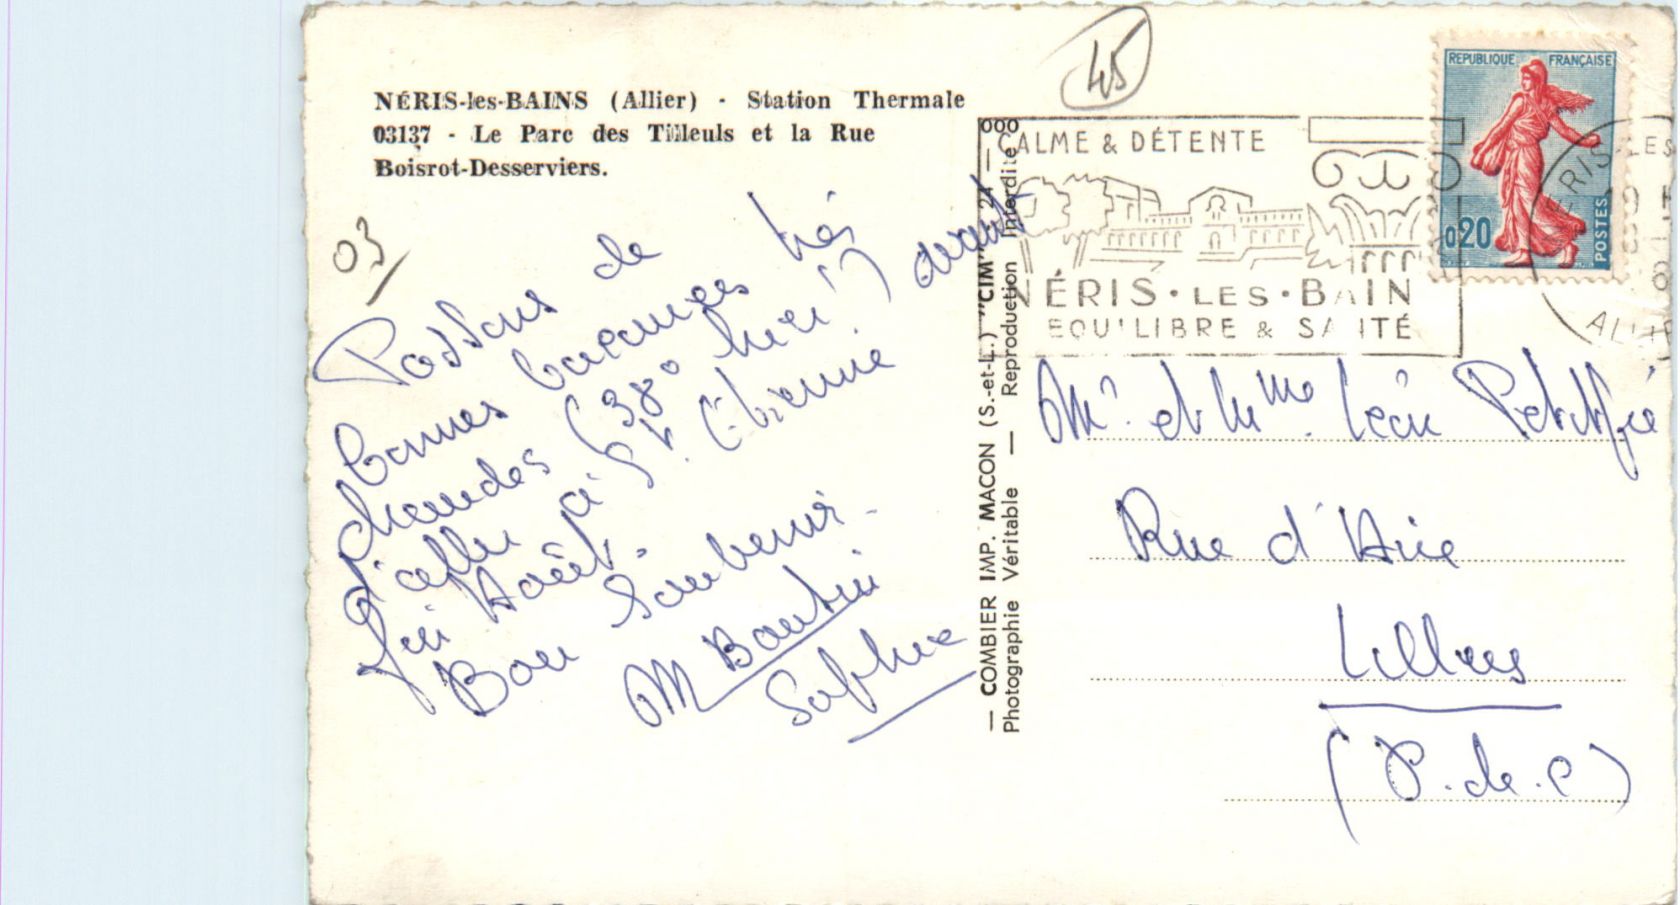 NÉRIS-les-BAINS (Allier) - Station Thermale
03137 - Le Parc des Tilleuls et la Rue
Boisrot-Desserviers.
03
Passons de
bonnes vacances très
chaudes (38° hier!) avant
d'aller à St. Etienne
fin Août.
Bon Souvenir.
M Boutin
Sophie
— COMBIER IMP. MACON (S.-et-L.) "CIM"
Photographie Véritable — Reproduction Interdite
45
CALME & DÉTENTE
NÉRIS·LES·BAIN
EQUILIBRE & SANTÉ
REPUBLIQUE FRANÇAISE
0,20
POSTES
Mr. et Mme. Léon
Rue d'Aire
Lillers
(P.de.C)